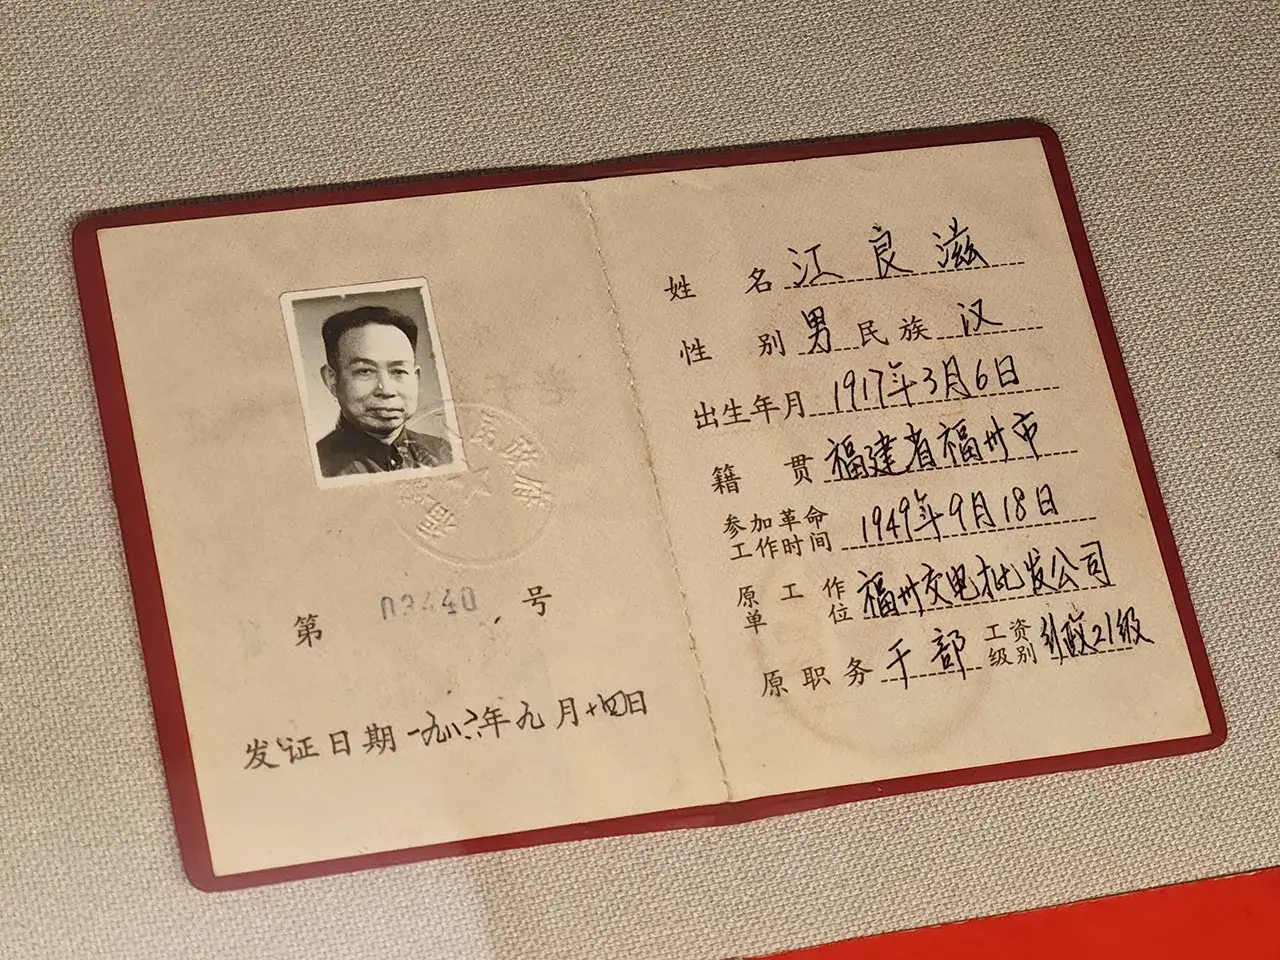 第 03440 号
发证日期一九八六年九月十四日
姓名 江良滋
性别 男 民族 汉
出生年月 1917年3月6日
籍贯 福建省福州市
参加革命工作时间 1949年9月18日
原工作单位 福州交电批发公司
原职务 干部 工资级别 行政21级